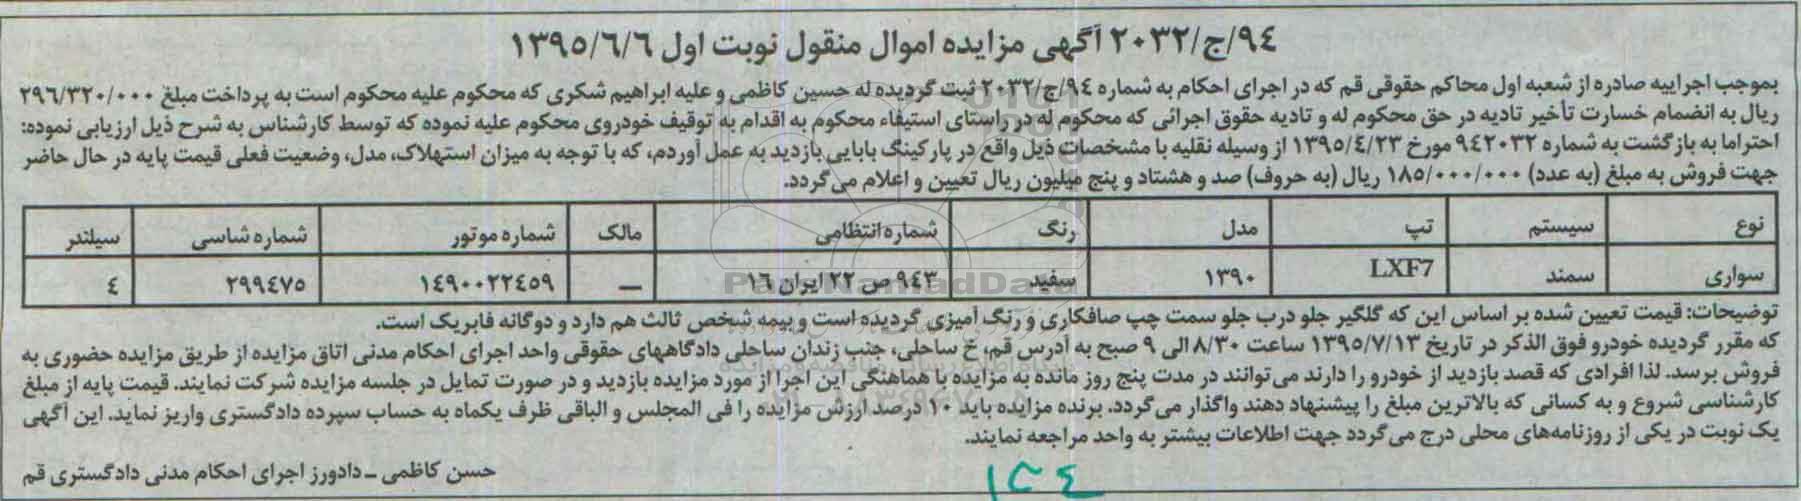 ۹٤/ج/۲۰۳۲ آگهی مزایده اموال منقول نوبت اول ۱۳۹۵/٦/٦
بموجب اجراییه صادره از شعبه اول محاکم حقوقی قم که در اجرای احکام به شماره ۹٤/ج/۲۰۳۲ ثبت گردیده له حسین کاظمی و علیه ابراهیم شکری که محکوم علیه محکوم است به پرداخت مبلغ ۲۹٦/۳۲۰/۰۰۰
ریال به انضمام خسارت تأخیر تادیه در حق محکوم له و تادیه حقوق اجرائی که محکوم له در راستای استیفاء محکوم به اقدام به توقیف خودروی محکوم علیه نموده که توسط کارشناس به شرح ذیل ارزیابی نموده:
احتراما به بازگشت به شماره ۹٤۲۰۳۲ مورخ ۱۳۹۵/٤/۲۳ از وسیله نقلیه با مشخصات ذیل واقع در پارکینگ بابایی بازدید به عمل آوردم، که با توجه به میزان استهلاک، مدل، وضعیت فعلی قیمت پایه در حال حاضر
جهت فروش به مبلغ (به عدد) ۱۸۵/۰۰۰/۰۰۰ ریال (به حروف) صد و هشتاد و پنج میلیون ریال تعیین و اعلام می‌گردد.
نوع سیستم تپ مدل رنگ شماره انتظامی مالک شماره موتور شماره شاسی سیلندر
سواری سمند LXF7 ۱۳۹۰ سفید ۹٤۳ ص ۲۲ ایران ۱٦ — ۱٤۹۰۰۲۲٤۵۹ ۲۹۹٤۷۵ ٤
توضیحات: قیمت تعیین شده بر اساس این که گلگیر جلو درب جلو سمت چپ صافکاری و رنگ آمیزی گردیده است و بیمه شخص ثالث هم دارد و دوگانه فابریک است.
که مقرر گردیده خودرو فوق الذکر در تاریخ ۱۳۹۵/۷/۱۳ ساعت ۸/۳۰ الی ۹ صبح به آدرس قم، خ ساحلی، جنب زندان ساحلی دادگاههای حقوقی واحد اجرای احکام مدنی اتاق مزایده از طریق مزایده حضوری به
فروش برسد. لذا افرادی که قصد بازدید از خودرو را دارند می‌توانند در مدت پنج روز مانده به مزایده با هماهنگی این اجرا از مورد مزایده بازدید و در صورت تمایل در جلسه مزایده شرکت نمایند. قیمت پایه از مبلغ
کارشناسی شروع و به کسانی که بالاترین مبلغ را پیشنهاد دهند واگذار می‌گردد. برنده مزایده باید ۱۰ درصد ارزش مزایده را فی المجلس و الباقی ظرف یکماه به حساب سپرده دادگستری واریز نماید. این آگهی
یک نوبت در یکی از روزنامه‌های محلی درج می‌گردد جهت اطلاعات بیشتر به واحد مراجعه نمایند.
حسن کاظمی ـ دادورز اجرای احکام مدنی دادگستری قم